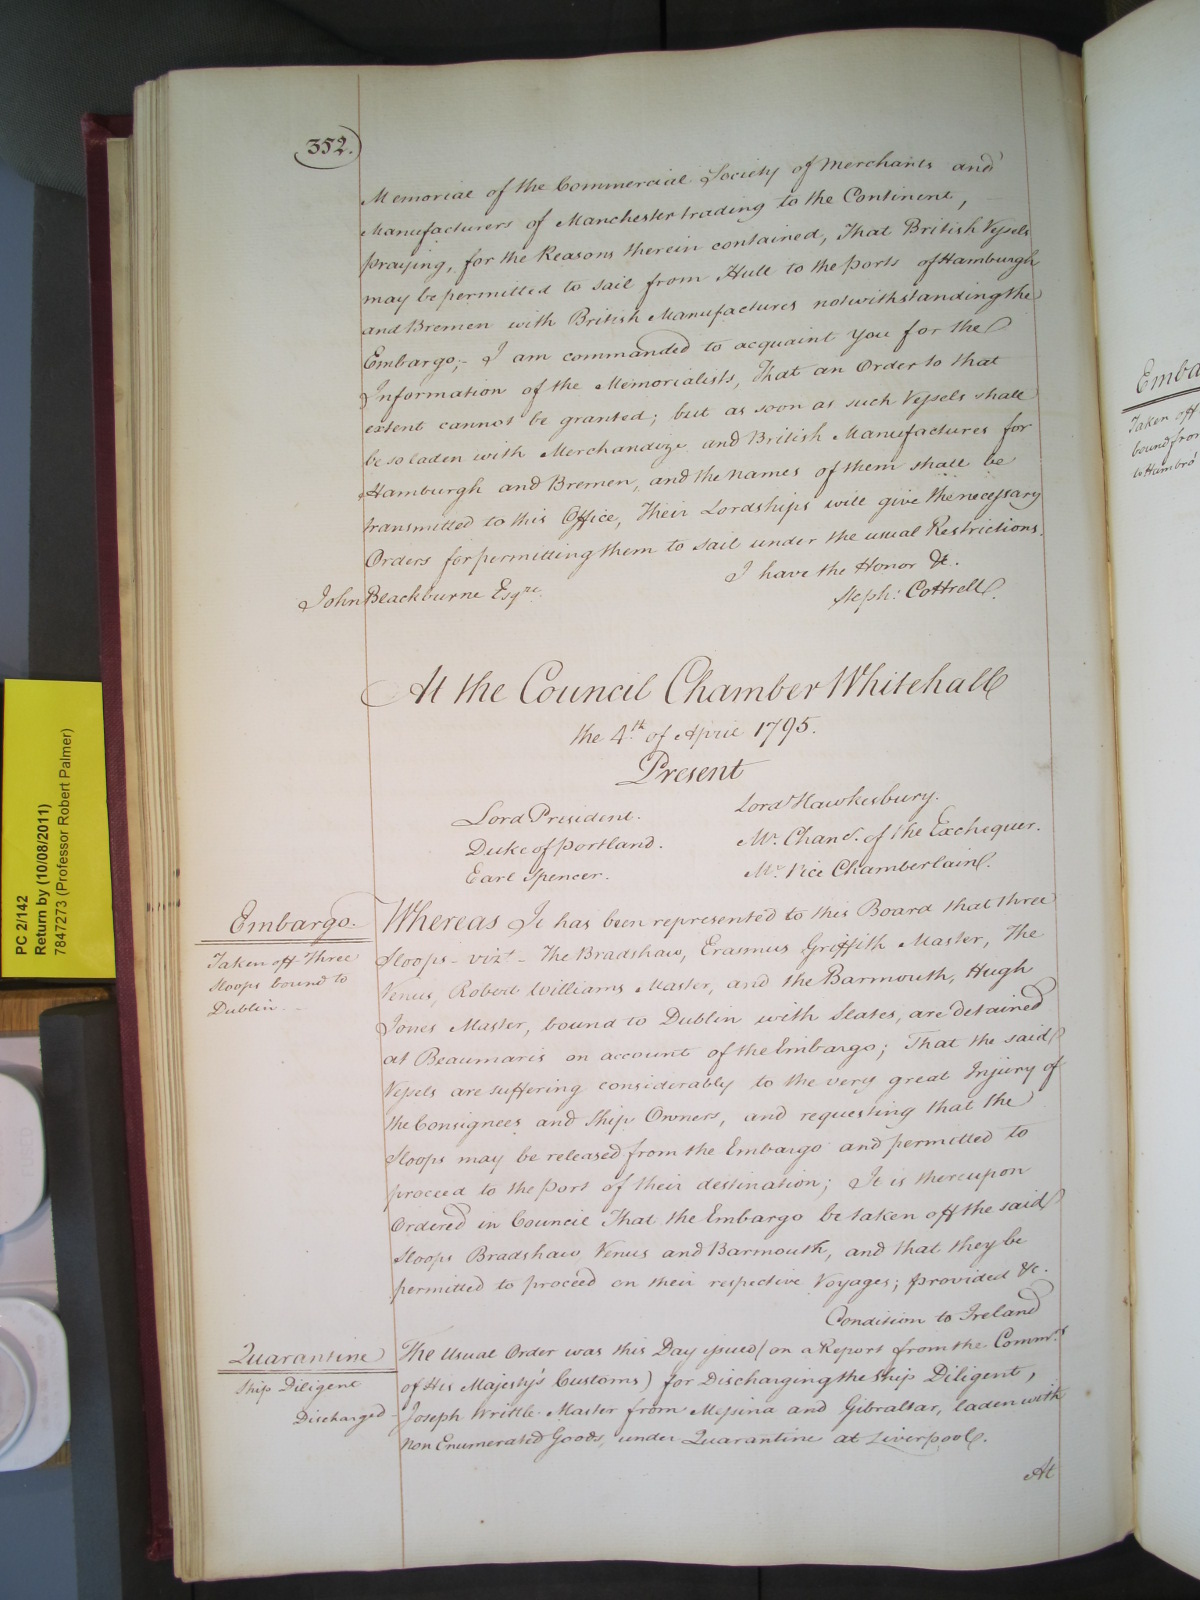 352.
Memorial of the Commercial Society of Merchants and
Manufacturers of Manchester trading to the Continent,
praying, for the Reasons therein contained, That British Vessels
may be permitted to sail from Hull to the Ports of Hamburgh
and Bremen with British Manufactures notwithstanding the
Embargo;- I am commanded to acquaint you for the
Information of the Memorialists, That an Order to that
extent cannot be granted; but as soon as such Vessels shall
be so laden with Merchandize and British Manufactures for
Hamburgh and Bremen, and the names of them shall be
transmitted to this Office, Their Lordships will give the necessary
Orders for permitting them to sail under the usual Restrictions.
I have the Honor &c.
John Blackburne Esqre.
Steph: Cottrell.
At the Council Chamber Whitehall
the 4th of April 1795.
Present
Lord President.
Lord Hawkesbury.
Duke of Portland.
Mr. Chanr. of the Exchequer.
Earl Spencer.
Mr. Vice Chamberlain.
Embargo.
Taken off Three
Sloops bound to
Dublin.
Whereas It has been represented to this Board that three
Sloops - vizt - The Bradshaw, Erasmus Griffith Master, The
Venus, Robert Williams Master, and the Barmouth, Hugh
Jones Master, bound to Dublin with Slates, are detained
at Beaumaris on account of the Embargo; That the said
Vessels are suffering considerably to the very great Injury of
the Consignees and Ship Owners, and requesting that the
Sloops may be released from the Embargo and permitted to
proceed to the Port of their destination; It is thereupon
Ordered in Council That the Embargo be taken off the said
Sloops Bradshaw Venus and Barmouth, and that they be
permitted to proceed on their respective Voyages; provided &c.
Condition to Ireland
Quarantine
Ship Diligent
Discharged
The Usual Order was this Day issued (on a Report from the Commrs
of His Majesty's Customs) for Discharging the Ship Diligent,
Joseph Writtle Master from Messina and Gibraltar, laden with
Non Enumerated Goods, under Quarantine at Liverpool.
At
PC 2/142
Return by (10/08/2011)
7847273 (Professor Robert Palmer)
Emba
Taken off
bound from
to Hambro'